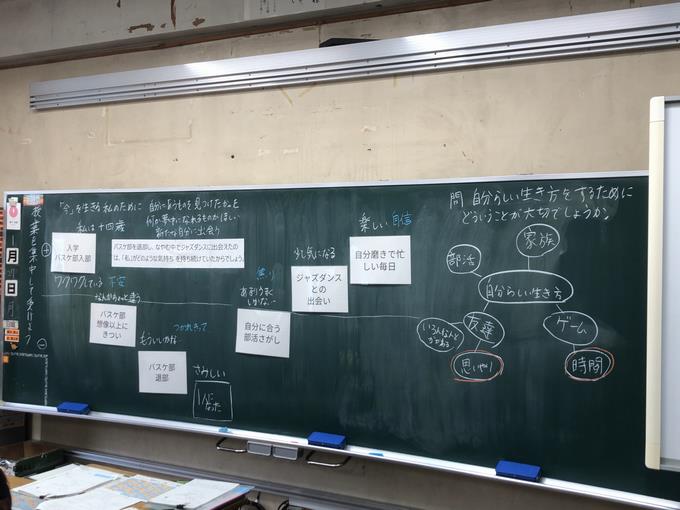 授業に集中して受けよう
1月
日
月
「今」を生きる私のために
私は十四歳
自分にあうものを見つけたかった
何か夢中になれるものがほしい
新たな自分に出会う
バスケ部を退部し、なやむ中でジャズダンスに出会えたの
は、「私」がどのような気持ちを持ち続けていたからでしょう。
⊕
入学
バスケ部入部
ワクワクしている 不安
なんかちょっと違う
バスケ部
想像以上に
きつい
もういいかな…
つかれきって
バスケ部
退部
さみしい
1人に
なった
焦り
あまりうまく
しかない…
自分に合う
部活さがし
少し気になる
ジャズダンス
との
出会い
楽しい 自信
自分磨きで忙
しい毎日
⊖
問 自分らしい生き方をするために
どういうことが大切でしょうか。
家族
部活
自分らしい生き方
友達
いろんな人と
ゲーム
思いやり
時間